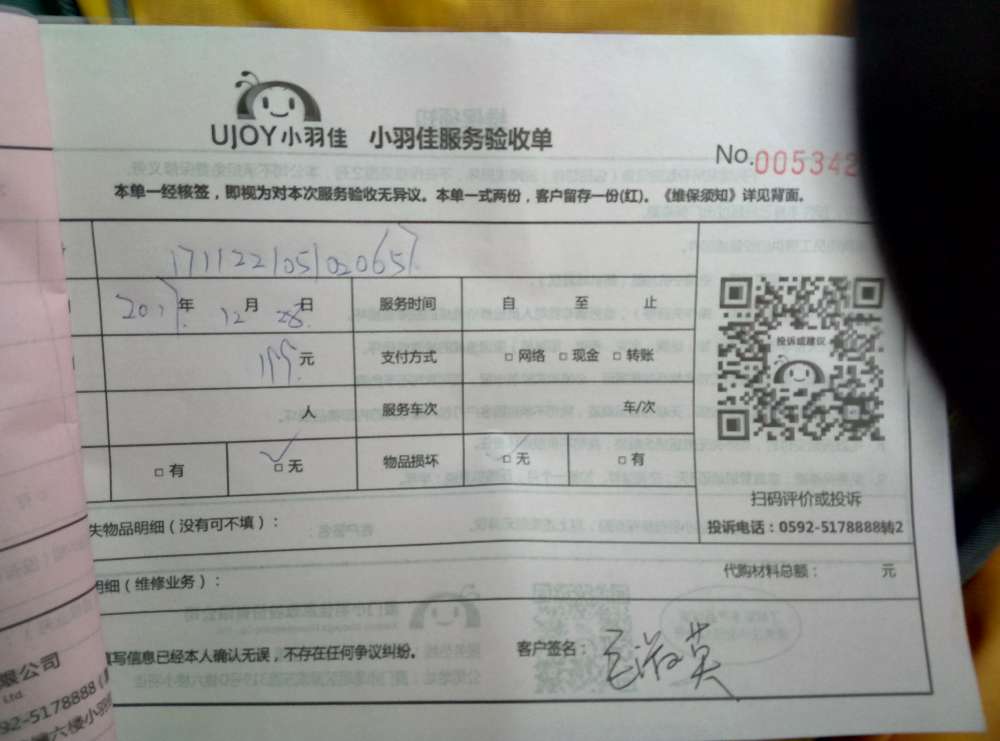 UJOY小羽佳 小羽佳服务验收单
No.005342
本单一经核签，即视为对本次服务验收无异议。本单一式两份，客户留存一份(红)。《维保须知》详见背面。
1711221051020657
2017年 12月 28日 服务时间 自 至 止
199元 支付方式 □ 网络 □ 现金 □ 转账
人 服务车次 车/次
□ 有 □ 无 物品损坏 □ 无 □ 有
投诉或建议
扫码评价或投诉
投诉电话：0592-5178888转2
失物品明细（没有可不填）：
明细（维修业务）： 代购材料总额： 元
填写信息已经本人确认无误，不存在任何争议纠纷。 客户签名：
限公司
Ltd.
92-5178888
六楼小羽